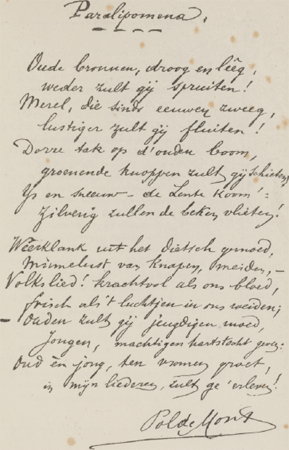 Paralipomena.
Oude bronnen, droog en lêeg,
weder zult gij spruiten!
Merel, die sinds eeuwen zweeg,
lustiger zult gij fluiten!
Dorre tak op d'ouden boom,
groenende knoppen zult gij schieten!
IJs en sneeuw – de Lente koom'! –
zilverig zullen de beken vlieten!
Weerklank uit het Dietsch gemoed,
Minnelust van knapen, meiden, –
Volkslied! krachtvol als ons bloed,
frisch als 't luchtjen in ons weiden;
– Ouden zult gij jeugdigen moed,
Jongen, machtigen hartstocht geven:
Oud èn jong, ten vromen groet,
in mijn liederen zult ge 'erleven!
Pol de Mont